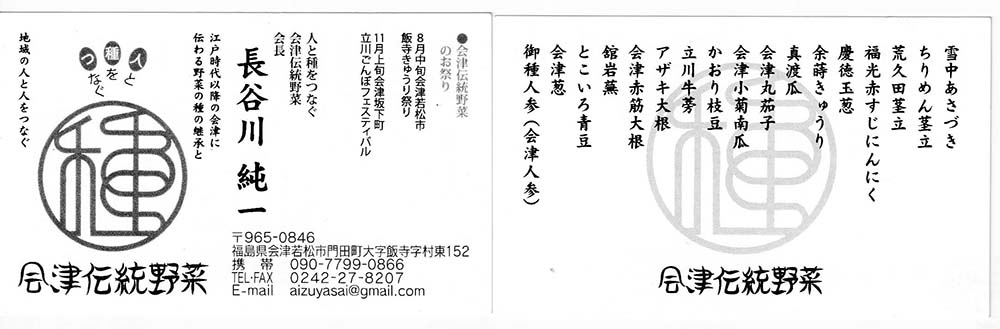 ●会津伝統野菜
のお祭り
8月中旬会津若松市
飯寺きゅうり祭り
11月上旬会津坂下町
立川ごんぼフェスティバル
人と種をつなぐ
会津伝統野菜
会長
長谷川 純一
江戸時代以降の会津に
伝わる野菜の種の継承と
地域の人と人をつなぐ
人と
種を
つなぐ
種
会津伝統野菜
〒965-0846
福島県会津若松市門田町大字飯寺字村東152
携 帯 090-7799-0866
TEL・FAX 0242-27-8207
E-mail aizuyasai@gmail.com
雪中あさづき
ちりめん茎立
荒久田茎立
福光赤すじにんにく
慶徳玉葱
余蒔きゅうり
真渡瓜
会津丸茄子
会津小菊南瓜
かおり枝豆
立川牛蒡
アザキ大根
会津赤筋大根
舘岩蕪
とこいろ青豆
会津葱
御種人参(会津人参)
種
会津伝統野菜